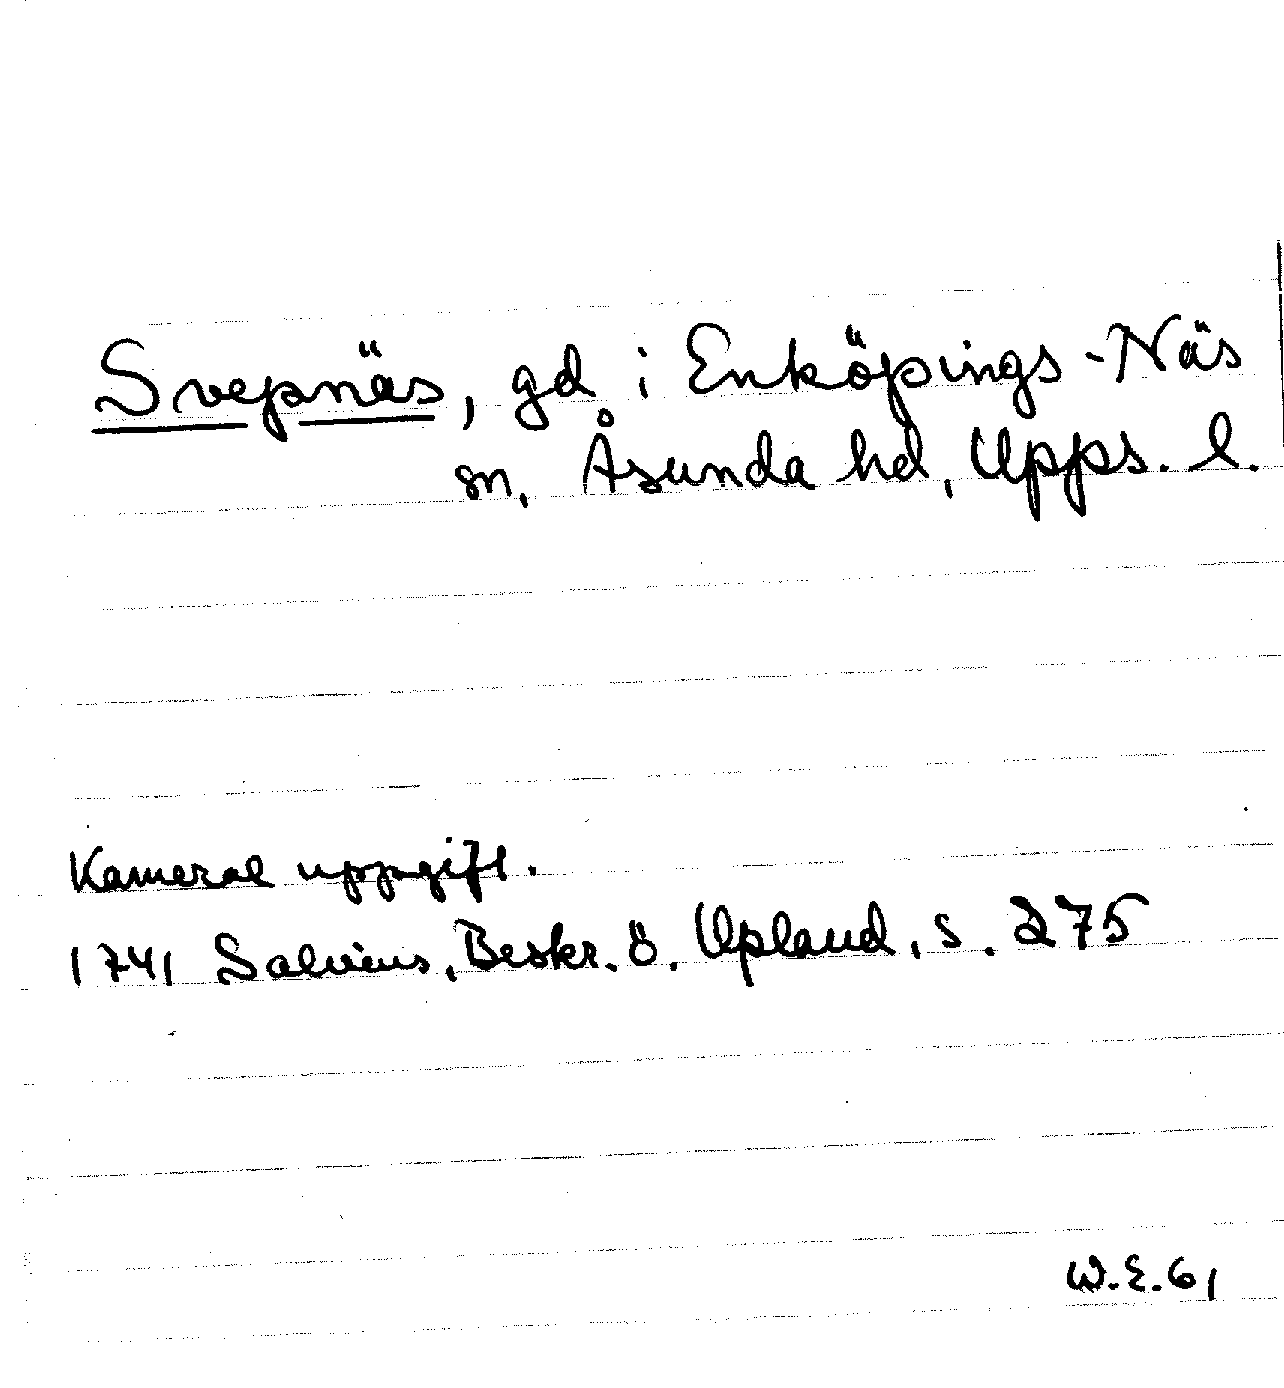 Svepnäs, gd i Enköpings-Näs
sn, Åsunda hd, Upps. l.
Kameral uppgift.
1741 Salvius, Beskr. ö. Upland, s. 275
W.E.61